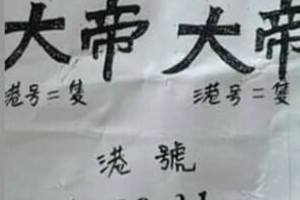 大帝 大帝
港号=隻 港号=隻
港號